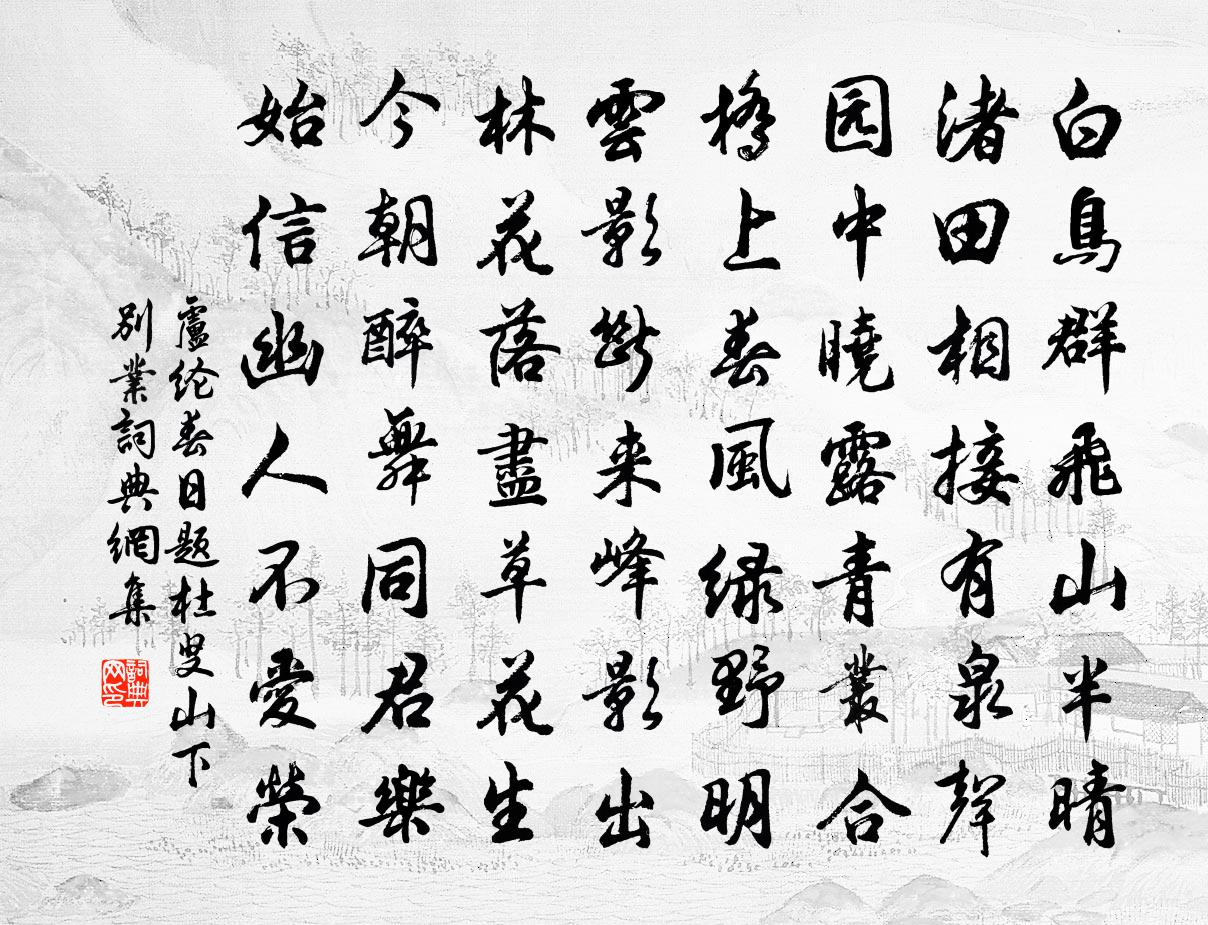 白鳥群飛山半晴
渚田相接有泉聲
园中曉露青叢合
橋上春風绿野明
雲影斷来峰影出
林花落盡草花生
今朝醉舞同君樂
始信幽人不愛榮
盧纶春日题杜叟山下
別業詞典網集
詞典网印